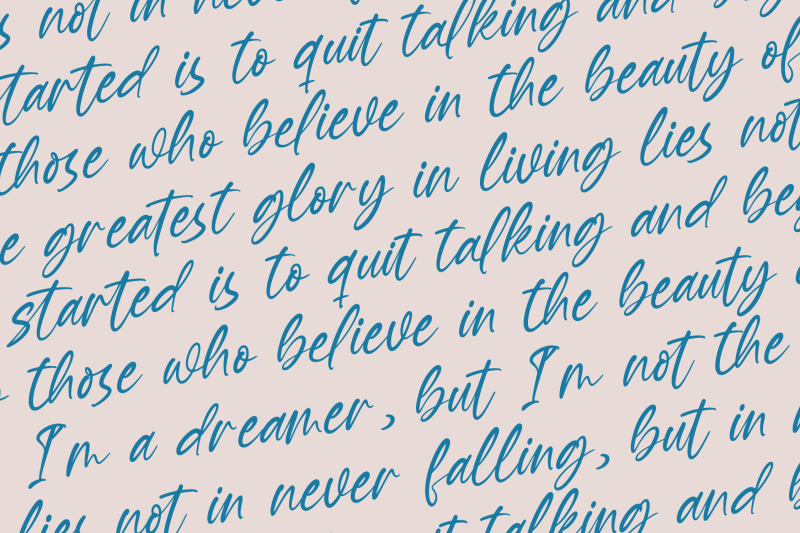 not in never
started is to quit talking and
those who believe in the beauty of
greatest glory in living lies not
started is to quit talking and
those who believe in the beauty
I'm a dreamer, but I'm not the
lies not in never falling, but in
talking and